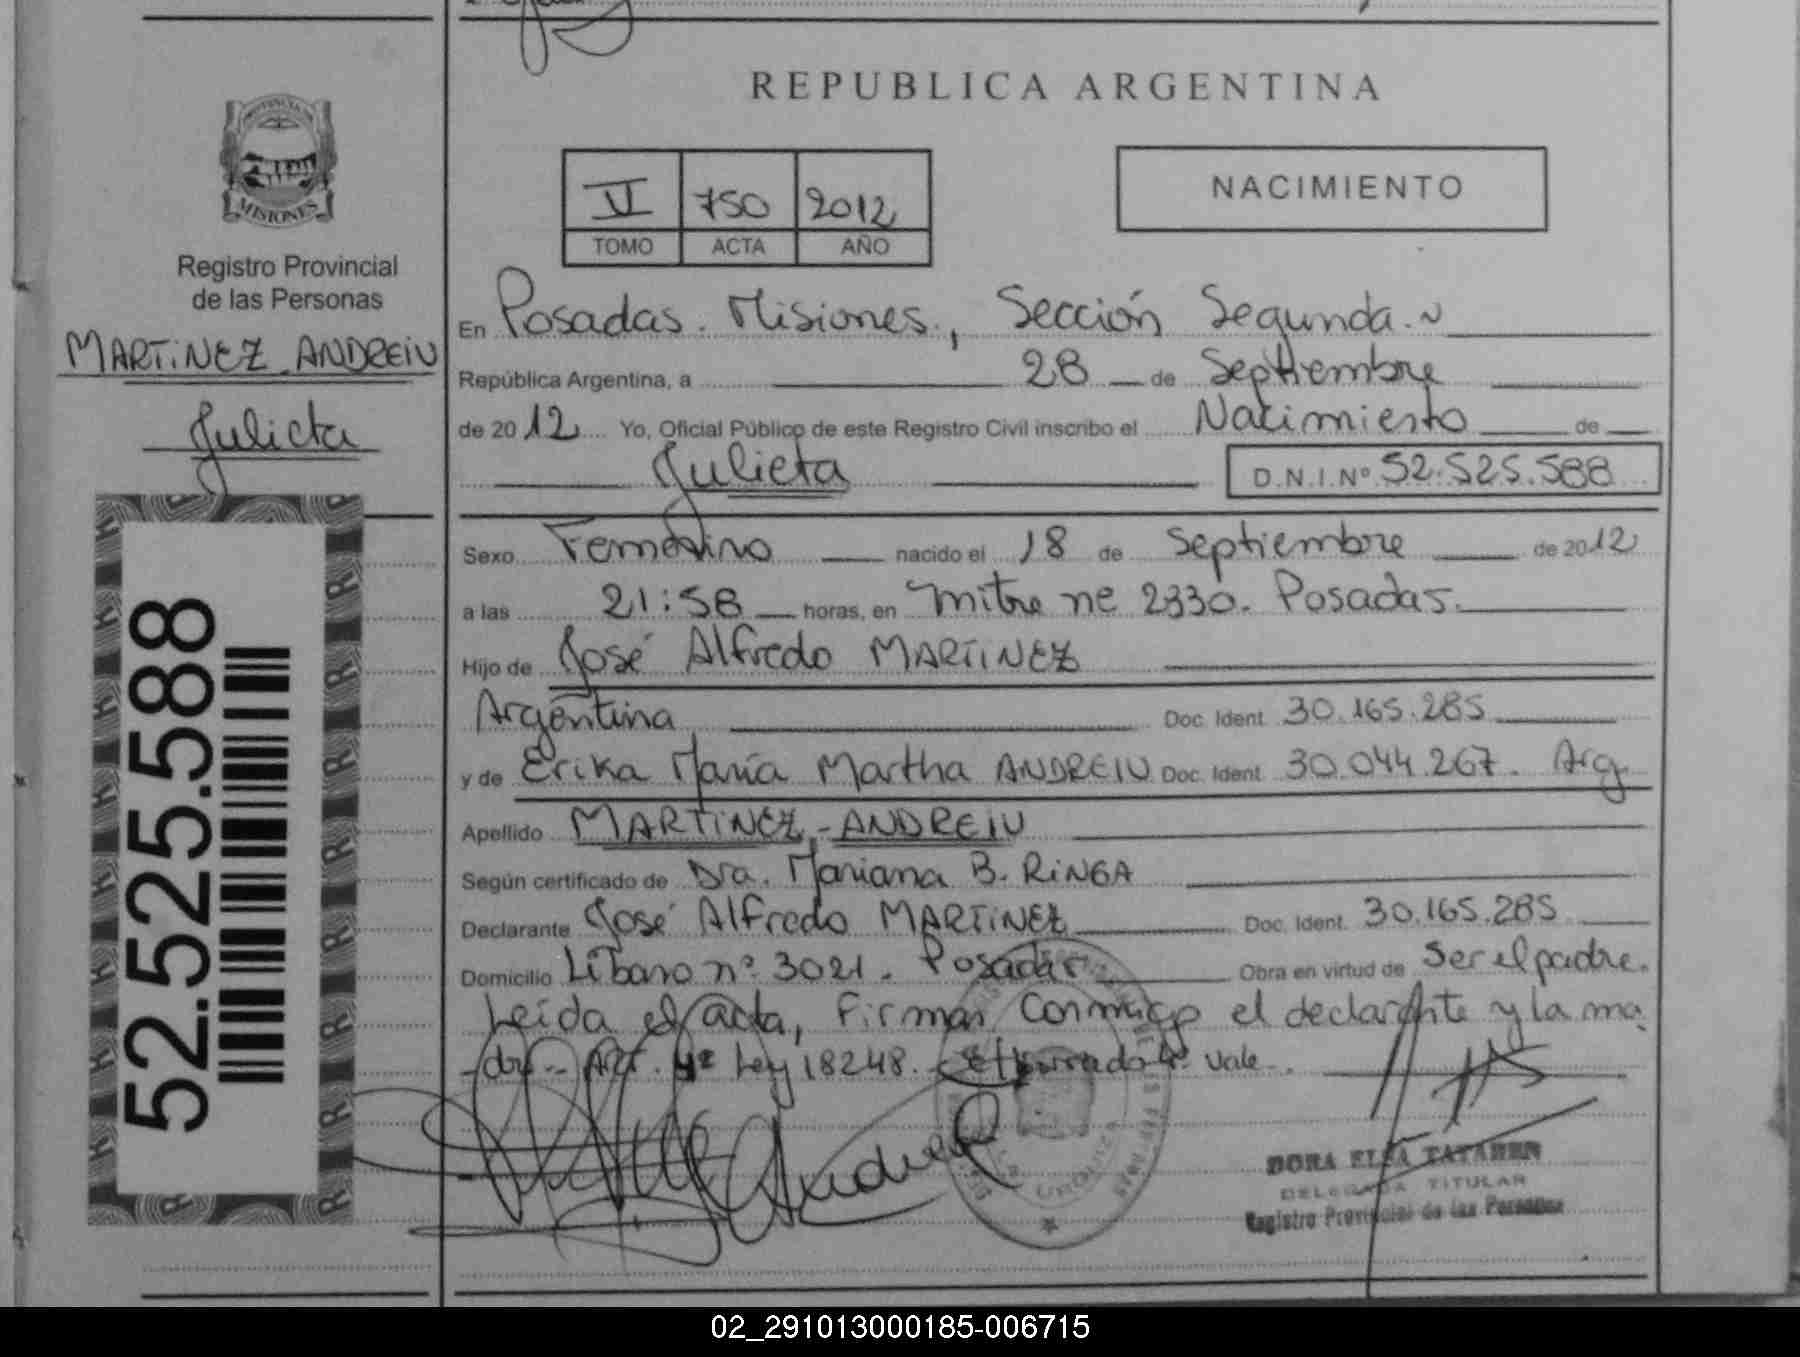 REPUBLICA ARGENTINA
PROVINCIA
MISIONES
Registro Provincial
de las Personas
MARTINEZ ANDREIU
Julieta
52.525.588
VI 750 2012
TOMO ACTA AÑO
NACIMIENTO
En Posadas. Misiones, Sección Segunda.
República Argentina, a 28 de Septiembre
de 2012 Yo, Oficial Público de este Registro Civil inscribo el Nacimiento de
Julieta D.N.I.Nº 52.525.588
Sexo Femenino nacido el 18 de Septiembre de 2012
a las 21:58 horas, en Mitre nº 2330. Posadas.
Hijo de José Alfredo MARTINEZ
Argentina Doc. Ident. 30.165.285
y de Erika María Martha ANDREIU Doc. Ident. 30.044.267. Arg.
Apellido MARTINEZ - ANDREIU
Según certificado de Dra. Mariana B. RINGA
Declarante José Alfredo MARTINEZ Doc. Ident. 30.165.285
Domicilio Líbano nº 3021. Posadas Obra en virtud de Ser el padre.
Leída el acta, Firman Conmigo el declarante y la ma
dre.- Art. 4º Ley 18248. vale.
DORA ELSA TATAREN
DELEGADA TITULAR
Registro Provincial de las Personas
02_291013000185-006715